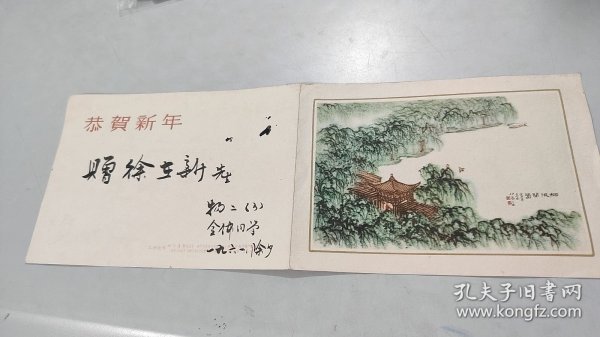 恭賀新年
赠徐立新先
物二(3)
全体同学
一九六一.除夕
柳浪聞鶯
孔夫子旧书网
www.kongfz.com